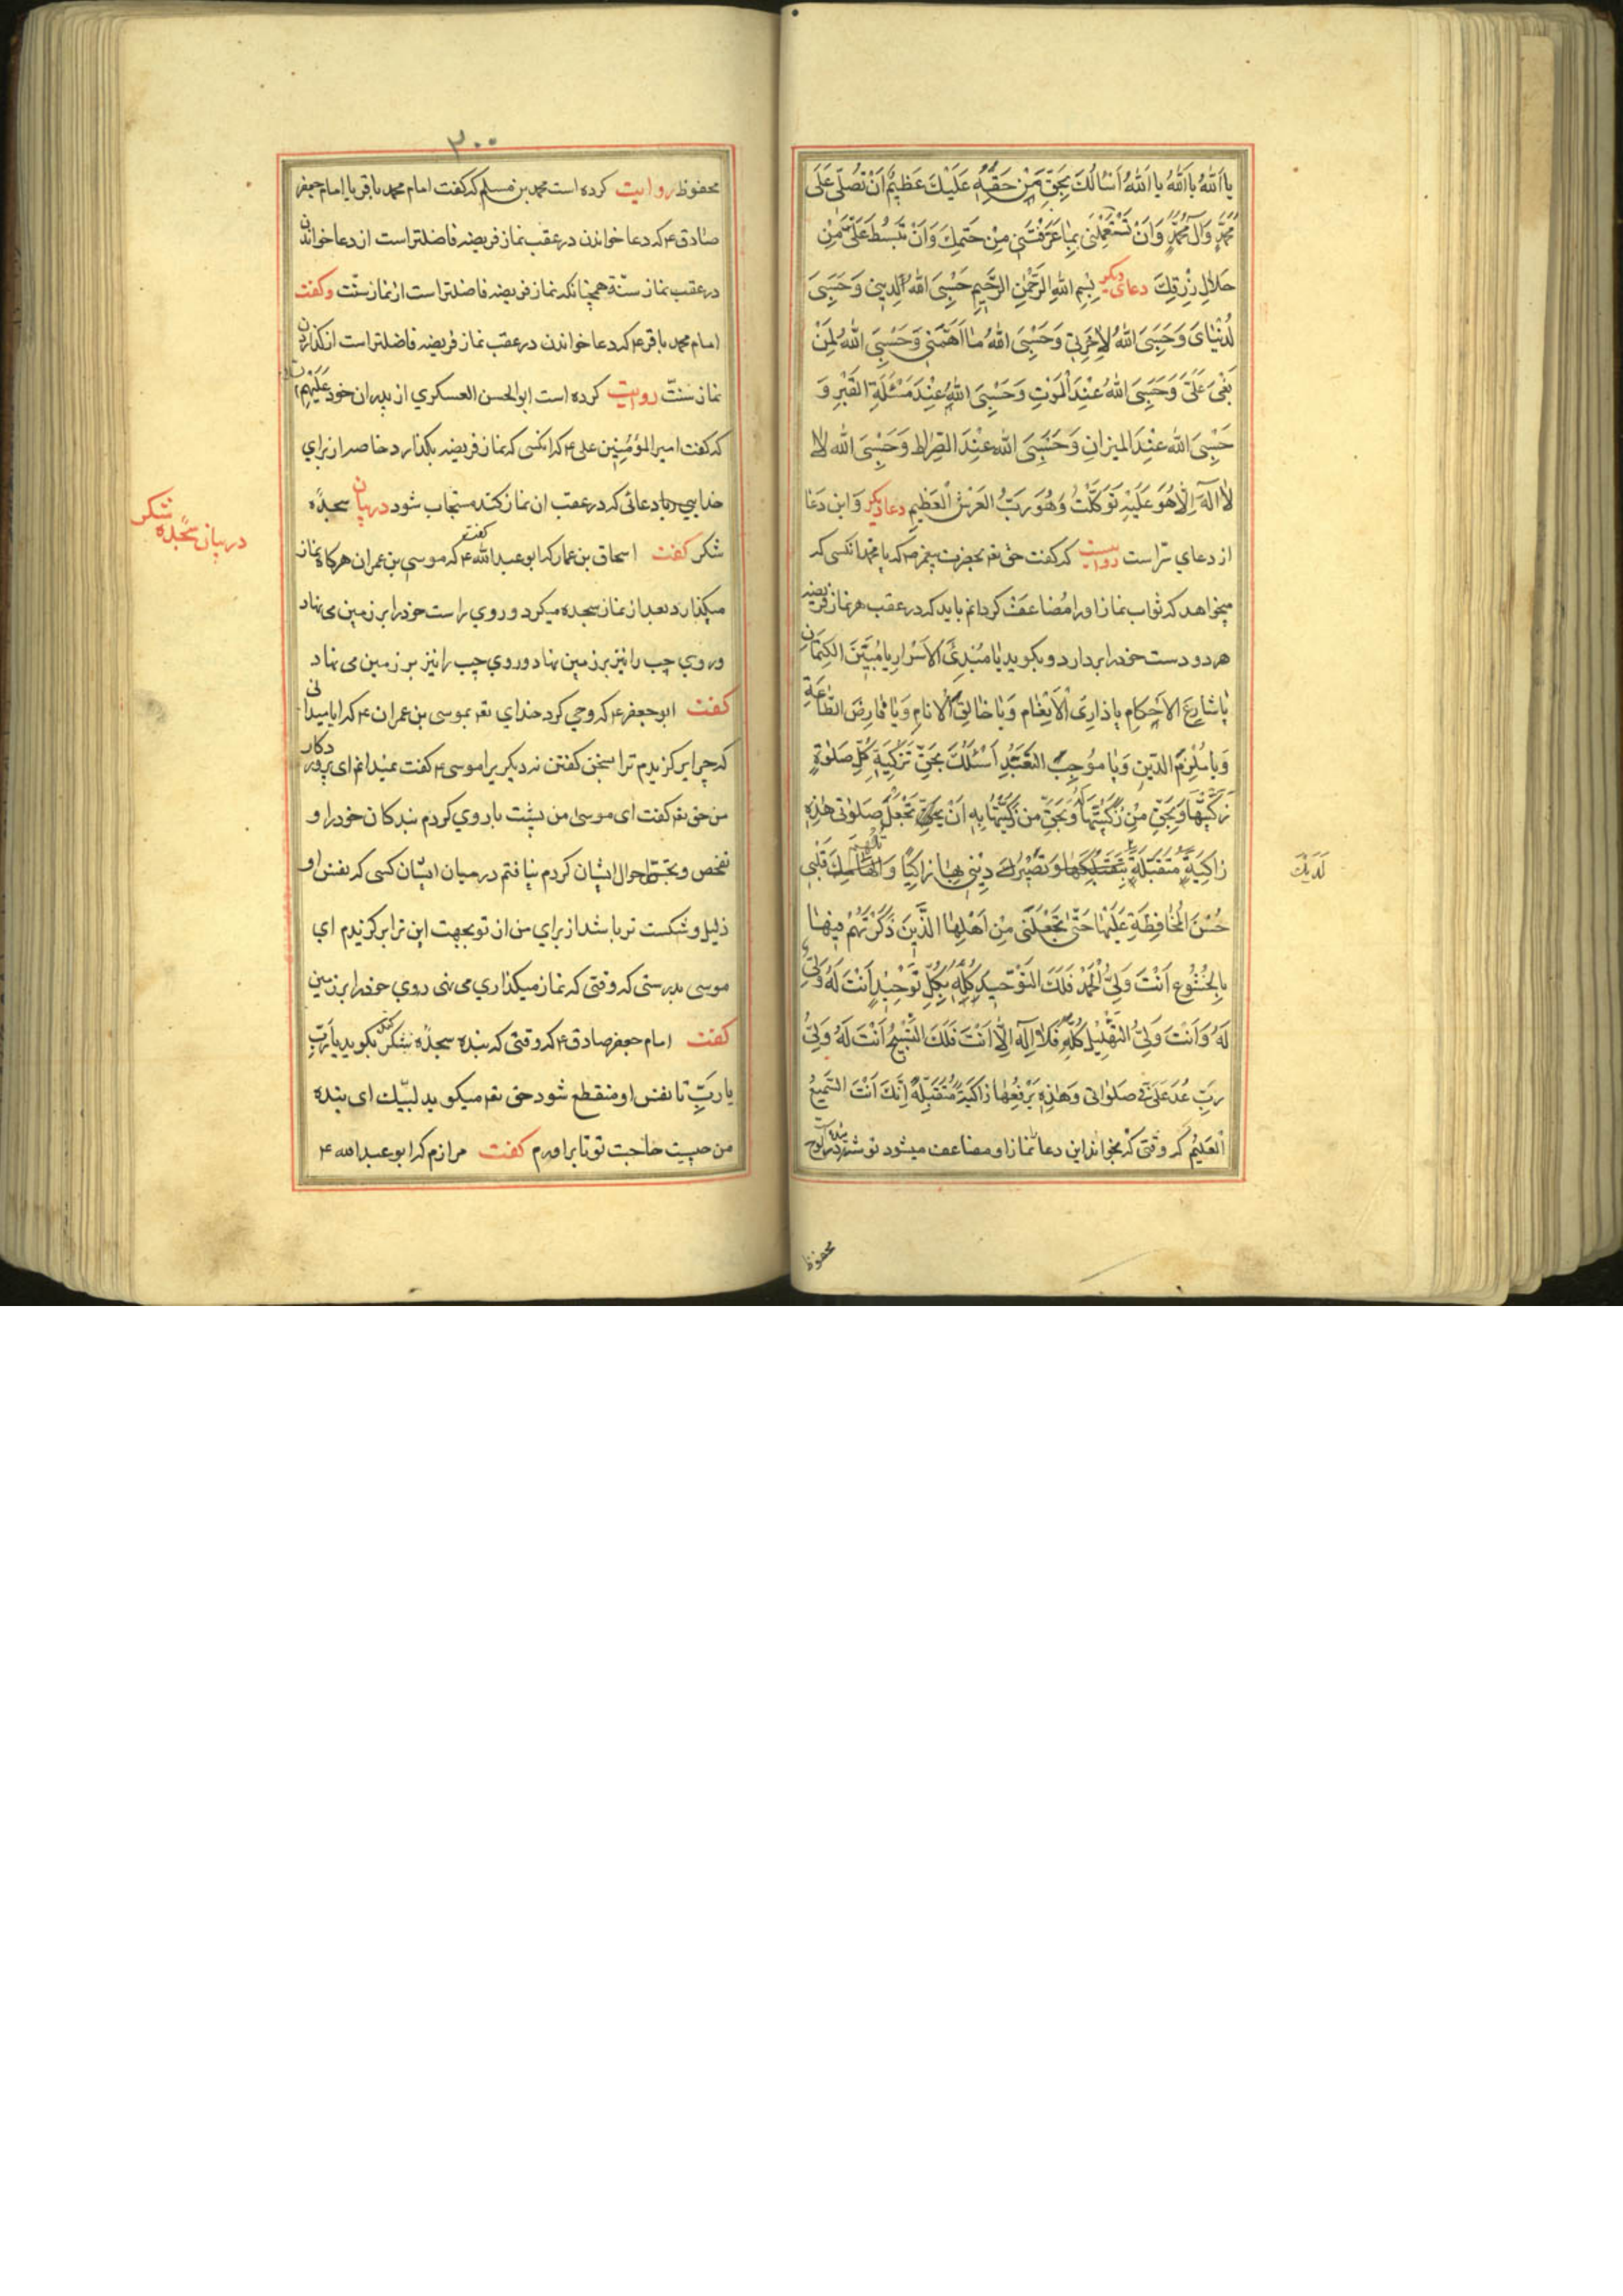 یا اَللّٰهُ یا اَللّٰهُ یا اَللّٰهُ اَسْاَلُكَ بِحَقِّ مَنْ حَقُّهُ عَلَیْكَ عَظیمٌ اَنْ تُصَلِّیَ عَلَی
مُحَمَّدٍ وَآلِ مُحَمَّدٍ وَاَنْ تَسْتَعْمِلَنی بِما عَرَّفْتَنی مِنْ حَقِّكَ وَاَنْ تَبْسُطَ عَلَیَّ مِنْ
حَلالِ رِزْقِكَ دعای دیگر بِسْمِ اللهِ الرَّحْمٰنِ الرَّحیمِ حَسْبِیَ اللهُ لِدینی وَحَسْبِیَ
لِدُنْیایَ وَحَسْبِیَ اللهُ لِاٰخِرَتی وَحَسْبِیَ اللهُ مٰا اَهَمَّنی وَحَسْبِیَ اللهُ لِمَنْ
بَغیٰ عَلَیَّ وَحَسْبِیَ اللهُ عِنْدَ الْمَوْتِ وَحَسْبِیَ اللهُ عِنْدَ مَسْئَلَةِ القَبْرِ وَ
حَسْبِیَ اللهُ عِنْدَ المیزانِ وَحَسْبِیَ اللهُ عِنْدَ الصِّراطِ وَحَسْبِیَ اللهُ لا
لا اِلٰهَ اِلّا هُوَ عَلَیْهِ تَوَكَّلْتُ وَهُوَ رَبُّ العَرْشِ الْعَظیمِ دعاء دیگر وَاین دعا
از دعای سرّ است روایت که گفت حق تع بحضرت پیغمبر ص که یا محمد انکسی که
میخواهد که ثواب نماز او را مُضاعَف گردانم باید که در عقب هر نماز فریضه
هر دو دست خود را بردارد و بگوید یا مُبْدِیَ الاَسْرارِ یا مُبَیِّنَ الكِتمانِ
یا شارِعَ الاَحكامِ یا ذارِیَ الاَنْعٰامِ وَیا خالِقَ الاَنامِ وَیا فارِضَ الطّاعَةِ
وَیا مُلْزِمَ الدّینِ وَیا مُوجِبَ التَّعَبُّدِ اَسْئَلُكَ بِحَقِّ تَزْكِیَةِ كُلِّ صَلٰوةٍ
زَكَّیْتَها وَبِحَقِّ مَنْ زَكَّیْتَها لَهُ وَبِحَقِّ مَن زَكَّیْتَها بِهِ اَنْ تَجْعَلَ صَلوٰتی هٰذِهِ
زاكِیَةً مُتَقَبَّلَةً بِتَقَبُّلِكَها وَتَصْییرِكَ دینی بِها زاكِیًا وَاِلْهامِكَ قَلْبی
حُسْنَ الْمُحافَظَةِ عَلَیْها حَتّیٰ تَجْعَلَنی مِنْ اَهْلِهَا الَّذینَ ذَكَرْتَهُمْ فیها
بِالْخُشُوعِ اَنْتَ وَلِیُّ الْحَمْدِ فَلَكَ التَّوْحیدُ كُلُّهُ بِكُلِّ تَوْحیدٍ اَنْتَ لَهُ وَلِیٌّ
لَهُ وَاَنْتَ وَلِیُّ التَّهْلیلِ كُلِّهِ فَلا اِلٰهَ اِلّا اَنْتَ فَلَكَ التَّسْبیحُ اَنْتَ لَهُ وَلِیٌّ
رَبِّ عُدْ عَلَیَّ فی صَلواتی وَهٰذِهِ بِرَفْعِها زاكِیَةً مُتَقَبَّلَةً اِنَّكَ اَنْتَ السَّمیعُ
الْعَلیمُ که وقتی که بخواند این دعا نماز او مضاعف میشود نوشته در لوح
محفوظ
لَدَیْكَ
۳۰۰
محفوظ روایت کرده است محمد بن مسلم که گفت امام محمد باقر یا امام جعفر
صادق ع که دعا خواندن در عقب نماز فریضه فاضلتر است از دعا خواندن
در عقب نماز سنّة همچنانکه نماز فریضه فاضلتر است از نماز سنّت وگفت
امام محمد باقر ع که دعا خواندن در عقب نماز فریضه فاضلتر است از گذاردن
نماز سنّت روایت کرده است ابو الحسن العسکری از پدران خود علیهم
که گفت امیر المؤمنین علی ع که انکسی که نماز فریضه بگذارد خاصه از برای
خدا دعائی که در عقب ان نماز کند مستجاب شود در بیان سجدهٔ
شکر گفت اسحاق بن عمار که ابو عبد الله ع گفت که موسی بن عمران هر گاه نماز
میگذارد بعد از نماز سجده میکرد و روی راست خود را بر زمین می نهاد
و روی چپ را نیز بر زمین نهاد و روی چپ را نیز بر زمین می نهاد
گفت ابو جعفر ع که وحی کرد خدای تع بموسی بن عمران ع که ایا میدانی
که چرا برگزیدم ترا بسخن گفتن نه دیگر یرا موسی ع گفت نمیدانم ای پروردکار
من حق تع گفت ای موسی من پشت با روی کردم بندکان خود را و
تفحص و تجسّس احوال ایشان کردم نیافتم در میان ایشان کسی که نفس او
ذلیل و شکست تر باشد از برای من از تو بجهت این ترا برگزیدم ای
موسی بدرستی که وقتی که نماز میگذاری می نهی روی خود را بر زمین
گفت امام جعفر صادق ع که وقتی که بنده سجدهٔ شکر کند بگوید یا رَبِّ
یا رَبِّ تا نفس او منقطع شود حق تع میگوید لبّیك ای بنده
من چیست حاجت تو تا براورم گفت مرازم که ابو عبد الله ع
در بیان سجدهٔ شکر